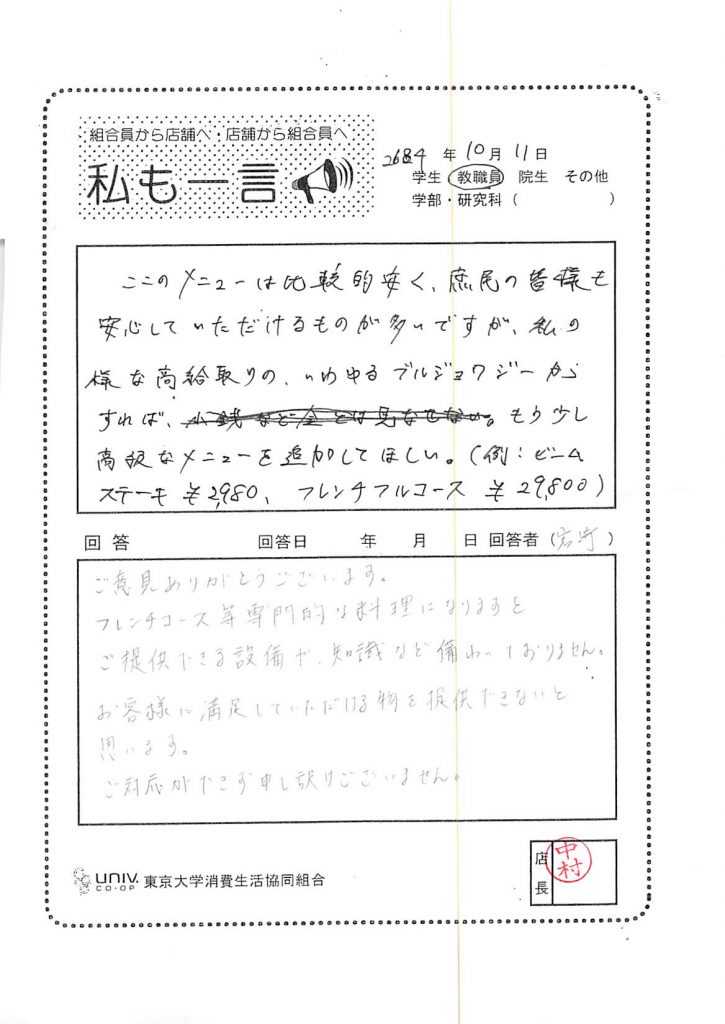 組合員から店舗へ・店舗から組合員へ
私も一言
2684 年 10月 11日
学生 教職員 院生 その他
学部・研究科 ( )
ここのメニューは比較的安く、庶民の皆様も
安心していただけるものが多いですが、私の
様な高給取りの、いわゆるブルジョワジーから
すれば、小銭など金とは見なせない。もう少し
高級なメニューを追加してほしい。(例:ビーム
ステーキ ¥2,980、フレンチフルコース ¥29,800)
回答 回答日 年 月 日 回答者 (宮崎)
ご意見ありがとうございます。
フレンチコース等専門的な料理になりますと
ご提供できる設備や、知識など備わっておりません。
お客様に満足していただける物を提供できないと
思います。
ご対応ができず申し訳ございません。
店長
中村
UNIV.
CO-OP
東京大学消費生活協同組合